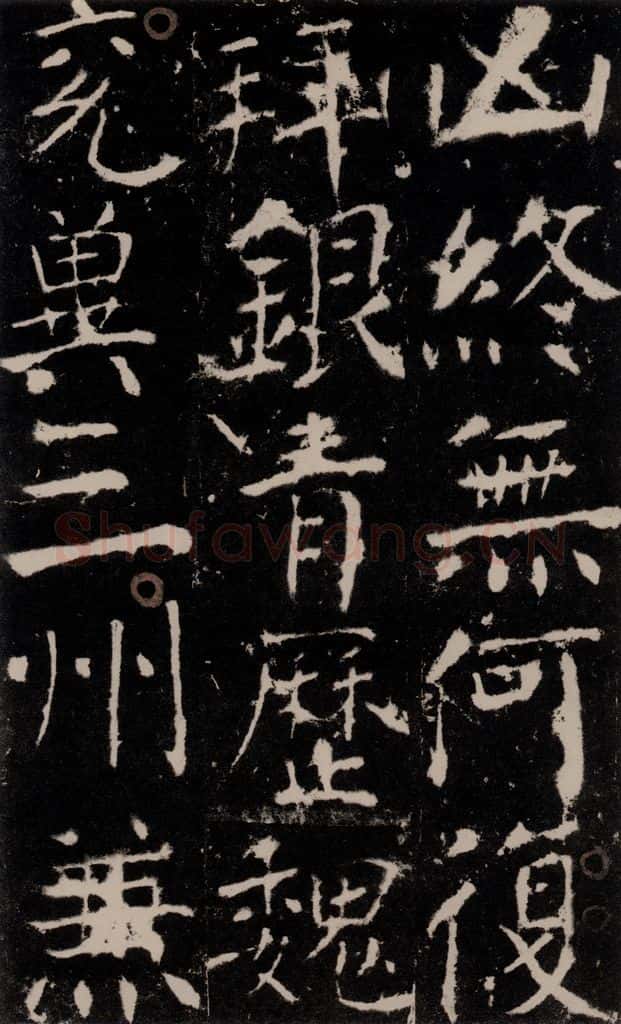 凶終無何復
拜銀青歷魏
兗冀三州兼
Shufawang.CN